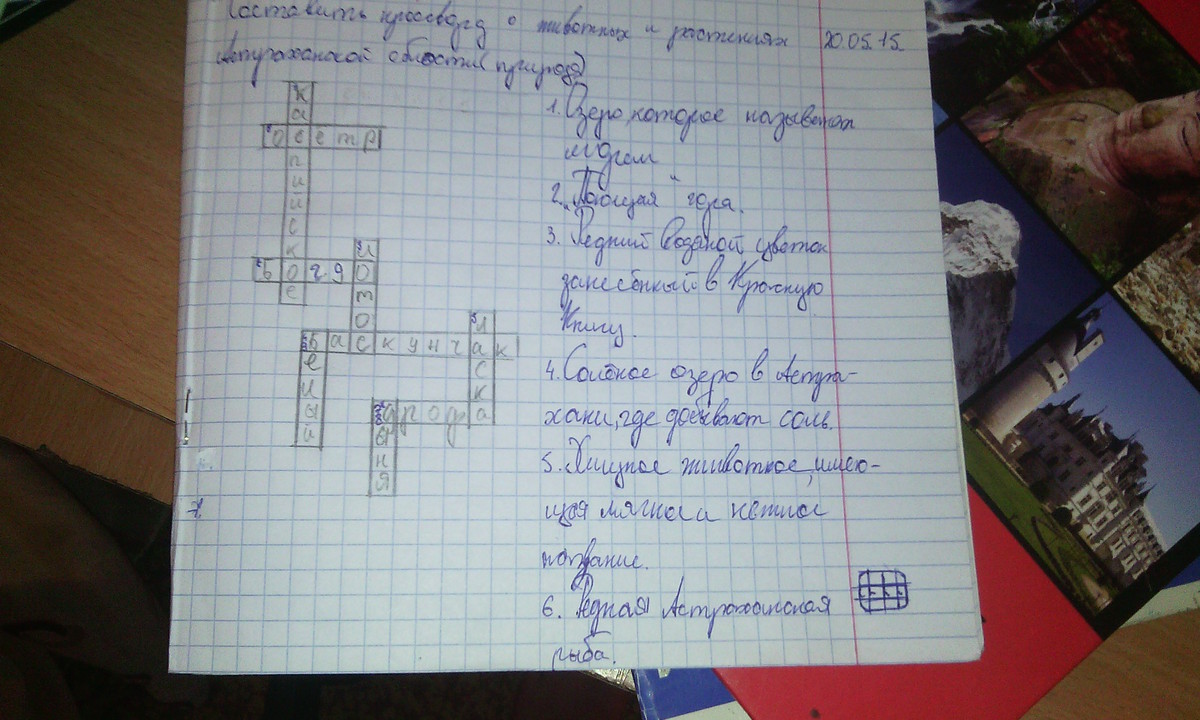 Составить кросворд о животных и растениях 20.05.15.
Астраханской области (природа)
Каспийское
осетр
Богдо
лотос
Баскунчак
ласка
Белый
дрофа
дыня
1. Озеро, которое называется
морем
2. "Поющая" гора.
3. Редкий водяной цветок
занесённый в Красную
Книгу.
4. Солёное озеро в Астра-
хани, где добывают соль.
5. Хищное животное, имею-
щая мягкое и нежное
название.
6. Редкая Астраханская
рыба.